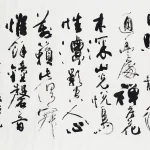 通幽處禪房花
木深山光悅鳥
性潭影空人心
萬籟此俱寂
惟餘鐘磬音